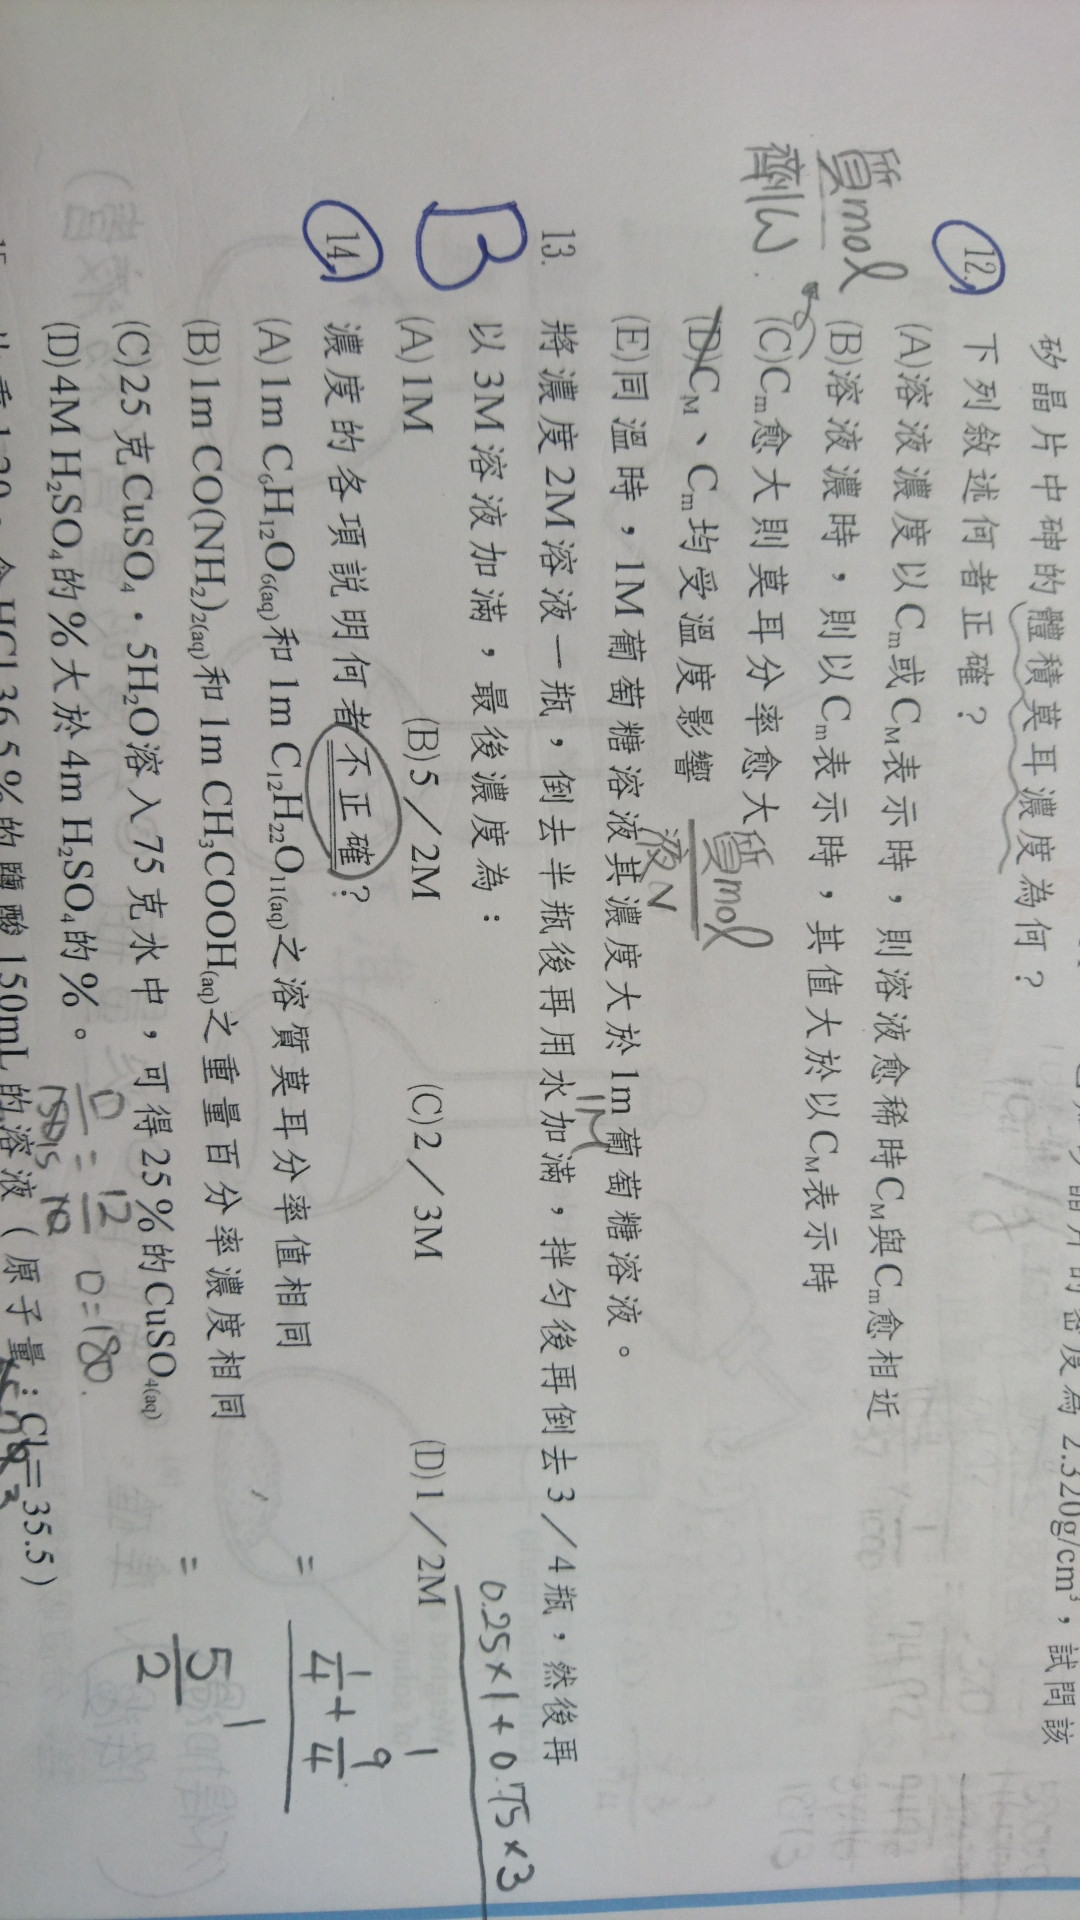 矽晶片中砷的體積莫耳濃度為何？
晶片的密度為 2.320g/cm³，試問該
12. 下列敘述何者正確？
(A)溶液濃度以Cm或CM表示時，則溶液愈稀時CM與Cm愈相近
(B)溶液濃時，則以Cm表示時，其值大於以CM表示時
質mol
劑W
(C)Cm愈大則莫耳分率愈大
質mol
液N
(D)CM、Cm均受溫度影響
(E)同溫時，1M葡萄糖溶液其濃度大於1m葡萄糖溶液。
13. 將濃度2M溶液一瓶，倒去半瓶後再用水加滿，拌勻後再倒去3／4瓶，然後再
1M
以3M溶液加滿，最後濃度為：
B
0.25×1+0.75×3
1
(A)1M (B)5／2M (C)2／3M (D)1／2M
= 1/4 + 9/4
1
= 5/2
14. 濃度的各項說明何者不正確？
(A)1m C₆H₁₂O₆(aq)和1m C₁₂H₂₂O₁₁(aq)之溶質莫耳分率值相同
(B)1m CO(NH₂)₂(aq)和1m CH₃COOH(aq)之重量百分率濃度相同
(C)25克CuSO₄．5H₂O溶入75克水中，可得25%的CuSO₄(aq)
(D)4M H₂SO₄的%大於4m H₂SO₄的%。
令HCl 36.5%的鹽酸150mL的溶液（原子量：Cl＝35.5）